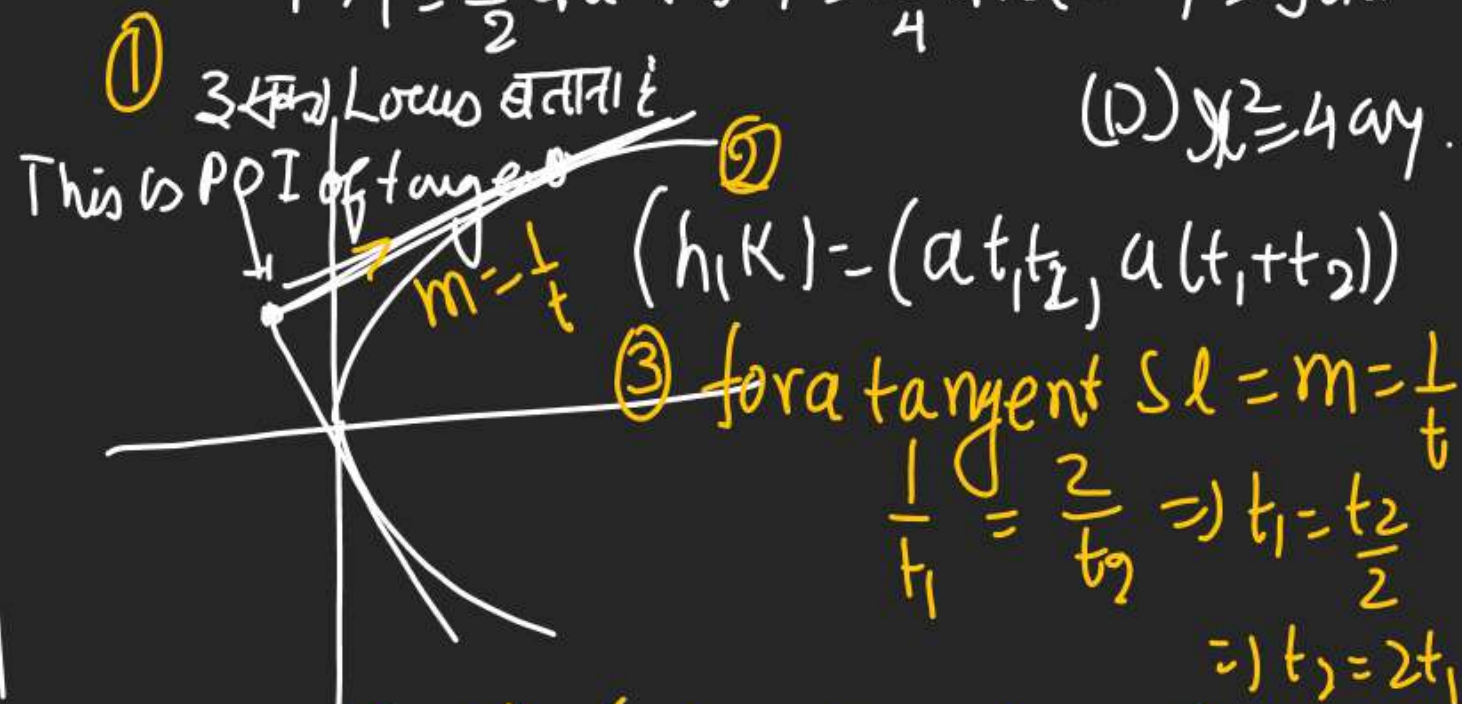 ①
Locus बताना
(D) x² = 4ay.
This is POI of tangent
②
m = 1/t
(h, K) = (at₁t₂, a(t₁+t₂))
③ for a tangent Sl = m = 1/t
1/t₁ = 2/t₂ => t₁ = t₂/2
=> t₂ = 2t₁